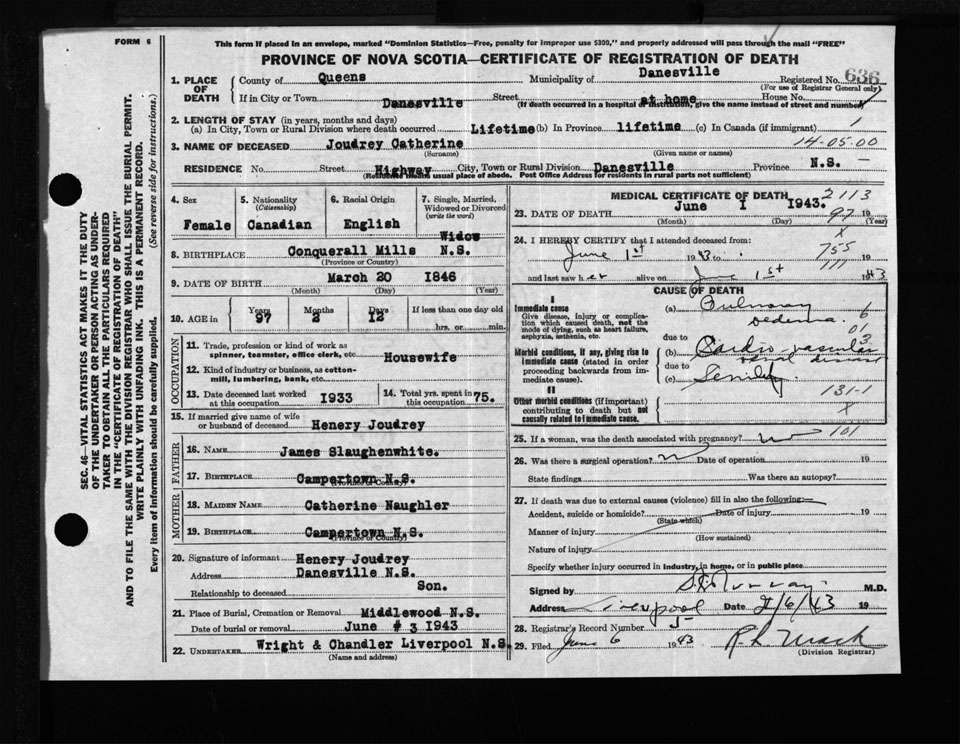 FORM 6
This form if placed in an envelope, marked "Dominion Statistics—Free, penalty for improper use $300," and properly addressed will pass through the mail "FREE"
PROVINCE OF NOVA SCOTIA—CERTIFICATE OF REGISTRATION OF DEATH
1. PLACE OF DEATH
County of Queens Municipality of Danesville Registered No. 636
(For use of Registrar General only)
If in City or Town Danesville Street at home House No.
(If death occurred in a hospital or institution, give the name instead of street and number)
2. LENGTH OF STAY (in years, months and days)
(a) In City, Town or Rural Division where death occurred Lifetime (b) In Province lifetime (c) In Canada (if immigrant) 1
3. NAME OF DECEASED Joudrey Catherine 14-05-00
(Surname) (Given name or names)
RESIDENCE No. Street Highway City, Town or Rural Division Danesville Province N.S. —
(Residence means usual place of abode. Post Office Address for residents in rural parts not sufficient)
4. Sex Female
5. Nationality (Citizenship) Canadian
6. Racial Origin English
7. Single, Married, Widowed or Divorced (write the word) Widow
8. BIRTHPLACE Conquerall Mills N.S.
(Province or Country)
9. DATE OF BIRTH March 20 1846
(Month) (Day) (Year)
10. AGE in Years 97 Months 2 Days 12 If less than one day old hrs. or min.
OCCUPATION
11. Trade, profession or kind of work as spinner, teamster, office clerk, etc. Housewife
12. Kind of industry or business, as cotton-mill, lumbering, bank, etc.
13. Date deceased last worked at this occupation 1933
14. Total yrs. spent in this occupation 75.
15. If married give name of wife or husband of deceased Henery Joudrey
FATHER
16. NAME James Slaughenwhite.
17. BIRTHPLACE Campertown N.S.
(Province or Country)
MOTHER
18. MAIDEN NAME Catherine Naughler
19. BIRTHPLACE Campertown N.S.
(Province or Country)
20. Signature of informant Henery Joudrey
Address Danesville N.S.
Relationship to deceased Son.
21. Place of Burial, Cremation or Removal Middlewood N.S.
Date of burial or removal June # 3 1943
22. UNDERTAKER Wright & Chandler Liverpool N.S.
(Name and address)
MEDICAL CERTIFICATE OF DEATH 2113
23. DATE OF DEATH June I 1943. 97 19
(Month) (Day) (Year)
X
24. I HEREBY CERTIFY that I attended deceased from:
June 1st 1943 to 755 19
and last saw her alive on June 1st 111 1943
CAUSE OF DEATH
I
Immediate cause
Give disease, injury or complication which caused death, not the mode of dying, such as heart failure, asphyxia, asthenia, etc.
(a) Pulmonary 6
oedema. 01
due to 3
Morbid conditions, if any, giving rise to immediate cause (stated in order proceeding backwards from immediate cause).
(b) Cardio vascular
renal disease
due to
(c) Senility
II 131-1
Other morbid conditions (if important) contributing to death but not causally related to immediate cause.
X
101
25. If a woman, was the death associated with pregnancy?
26. Was there a surgical operation? Date of operation 19
State findings Was there an autopsy?
27. If death was due to external causes (violence) fill in also the following:—
Accident, suicide or homicide? Date of injury 19
(State which)
Manner of injury
(How sustained)
Nature of injury
Specify whether injury occurred in industry, in home, or in public place
Signed by Murray M.D.
Address Liverpool Date 2/6/43 19
28. Registrar's Record Number 5
29. Filed June 6 1943 R L Mack
(Division Registrar)
SEC. 46—VITAL STATISTICS ACT MAKES IT THE DUTY
OF THE UNDERTAKER OR PERSON ACTING AS UNDER-
TAKER TO OBTAIN ALL THE PARTICULARS REQUIRED
IN THE "CERTIFICATE OF REGISTRATION OF DEATH"
AND TO FILE THE SAME WITH THE DIVISION REGISTRAR WHO SHALL ISSUE THE BURIAL PERMIT.
WRITE PLAINLY WITH UNFADING INK. THIS IS A PERMANENT RECORD.
Every item of information should be carefully supplied. (See reverse side for instructions.)